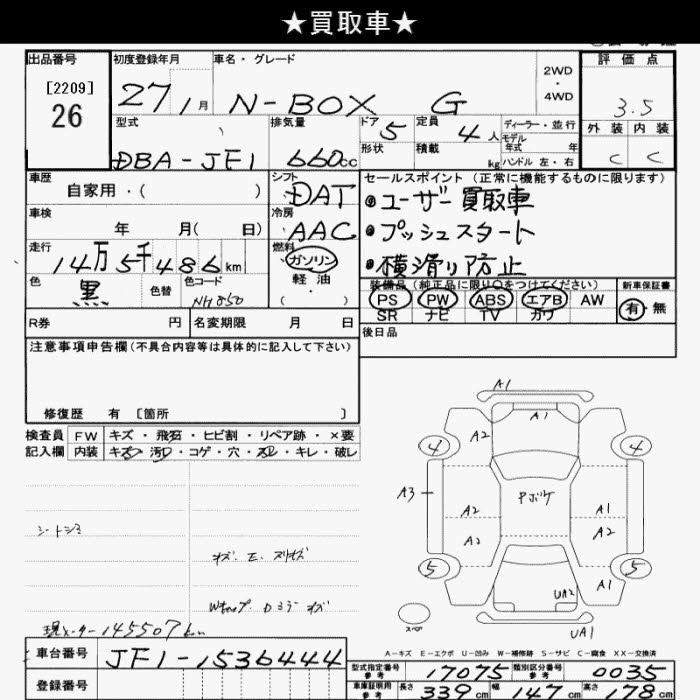 ★買取車★
出品番号
[2209]
26
初度登録年月
27 1月
車名・グレード
N-BOX G
2WD
・
4WD
評価点
3.5
外装 内装
C C
型式
DBA-JF1
排気量
660cc
ドア 5
形状
定員 4人
積載 kg
ディーラー・並行
モデル
年式 年
ハンドル 左・右
車歴
自家用・( )
シフト
DAT
車検
年 月( 日)
冷房
AAC
走行
14万5千486km
燃料
ガソリン
軽油
( )
色
黒
色替
色コード
NH850
セールスポイント (正常に機能するものに限ります)
●ユーザー買取車
●プッシュスタート
●横滑り防止
装備品(純正品に限り〇をつけてください)
PS PW ABS エアB AW
SR ナビ TV カワ
新車保証書
有・無
R券 円
名変期限 月 日
後日品
注意事項申告欄(不具合内容等は具体的に記入して下さい)
修復歴 有 [箇所 ]
検査員
記入欄
FW キズ・飛石・ヒビ割・リペア跡・×要
内装 キズ・汚れ・コゲ・穴・スレ・キレ・破レ
シートシミ
現メーター145507km
A1
A1
A2
4
4
A3
Pボケ
A2
A1
A2
A2
5
5
A1
UA2
UA1
スペア
A-キズ E-エクボ U-凹み W-補修跡 S-サビ C-腐食 XX-交換済
車台番号
JF1-1536444
登録番号
型式指定番号
参考
17075
類別区分番号
参考
0035
車庫証明用
参考
長さ 339cm
幅 147cm
高さ 178cm